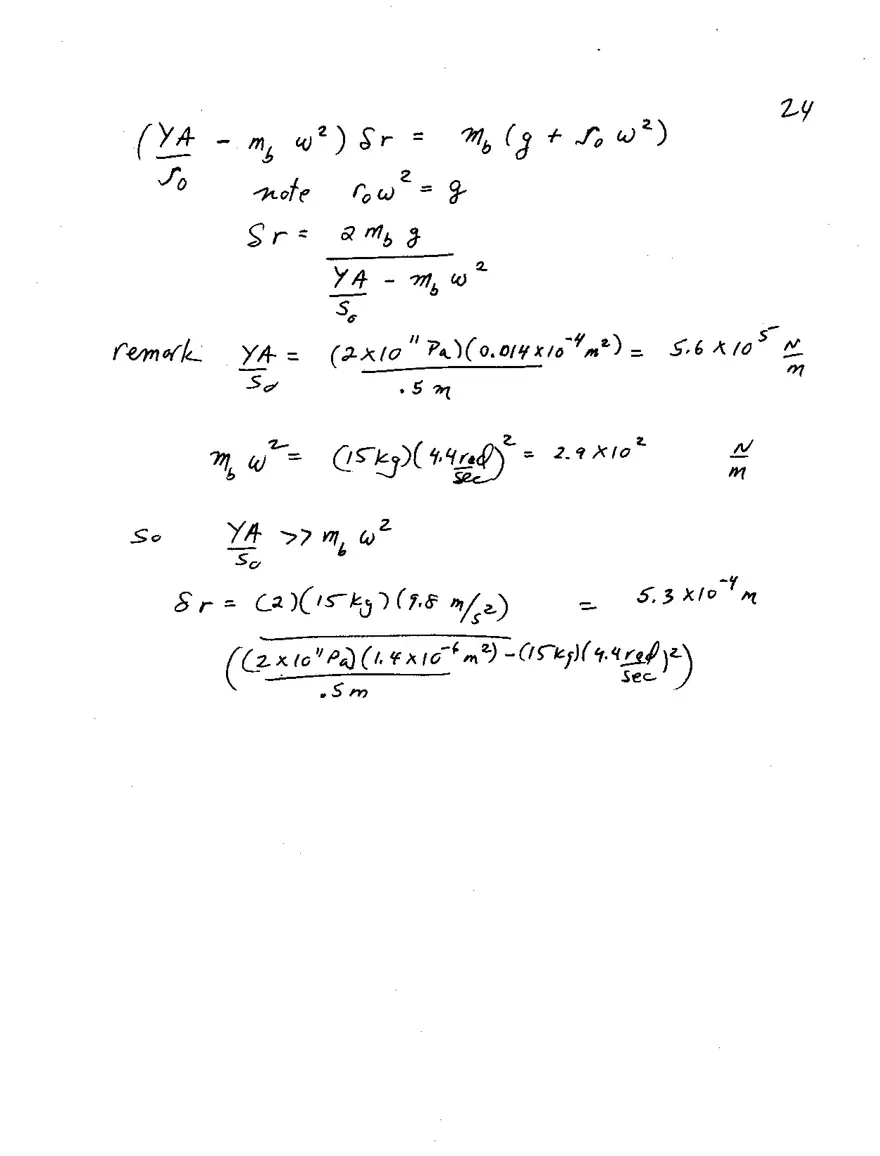 24
(YA/r₀ - m_b ω²) δr = m_b (g + r₀ ω²)
note r₀ω² = g
δr = 2 m_b g / (YA/S₀ - m_b ω²)
remark YA/S₀ = (2×10¹¹ Pa)(0.014×10⁻⁴ m²) / .5 m = 5.6 × 10⁵ N/m
m_b ω² = (15 kg)(4.4 rad/sec)² = 2.9 × 10² N/m
So YA/S₀ >> m_b ω²
δr = (2)(15 kg)(9.8 m/s²) / ((2×10¹¹ Pa)(1.4×10⁻⁶ m²)/.5 m - (15 kg)(4.4 rad/sec)²) = 5.3 × 10⁻⁴ m